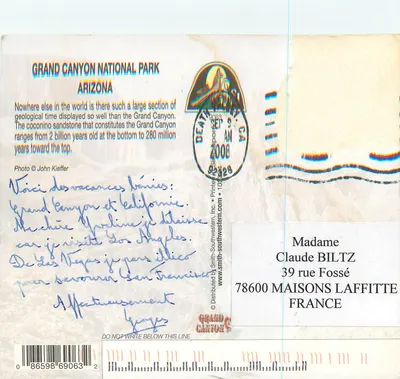 GRAND CANYON NATIONAL PARK
ARIZONA
Nowhere else in the world is there such a large section of
geological time displayed so well than the Grand Canyon.
The coconino sandstone that constitutes the Grand Canyon
ranges from 2 billion years old at the bottom to 280 million
years toward the top.
Photo © John Kieffer
Voici des vacances bénies:
Grand Canyon et Californie.
Ma chère je délaisse
car je visite Los Angeles.
De Las Vegas je pars illico
pour savourer San Francisco
Affectueusement
Georges
DO NOT WRITE BELOW THIS LINE
0 86598 69063 2
© Distributed by Smith-Southwestern, Inc.
www.smith-southwestern.com
GRAND
CANYON
DEATH VALLEY, CA
SEP
AM
2008
92328
Madame
Claude BILTZ
39 rue Fossé
78600 MAISONS LAFFITTE
FRANCE